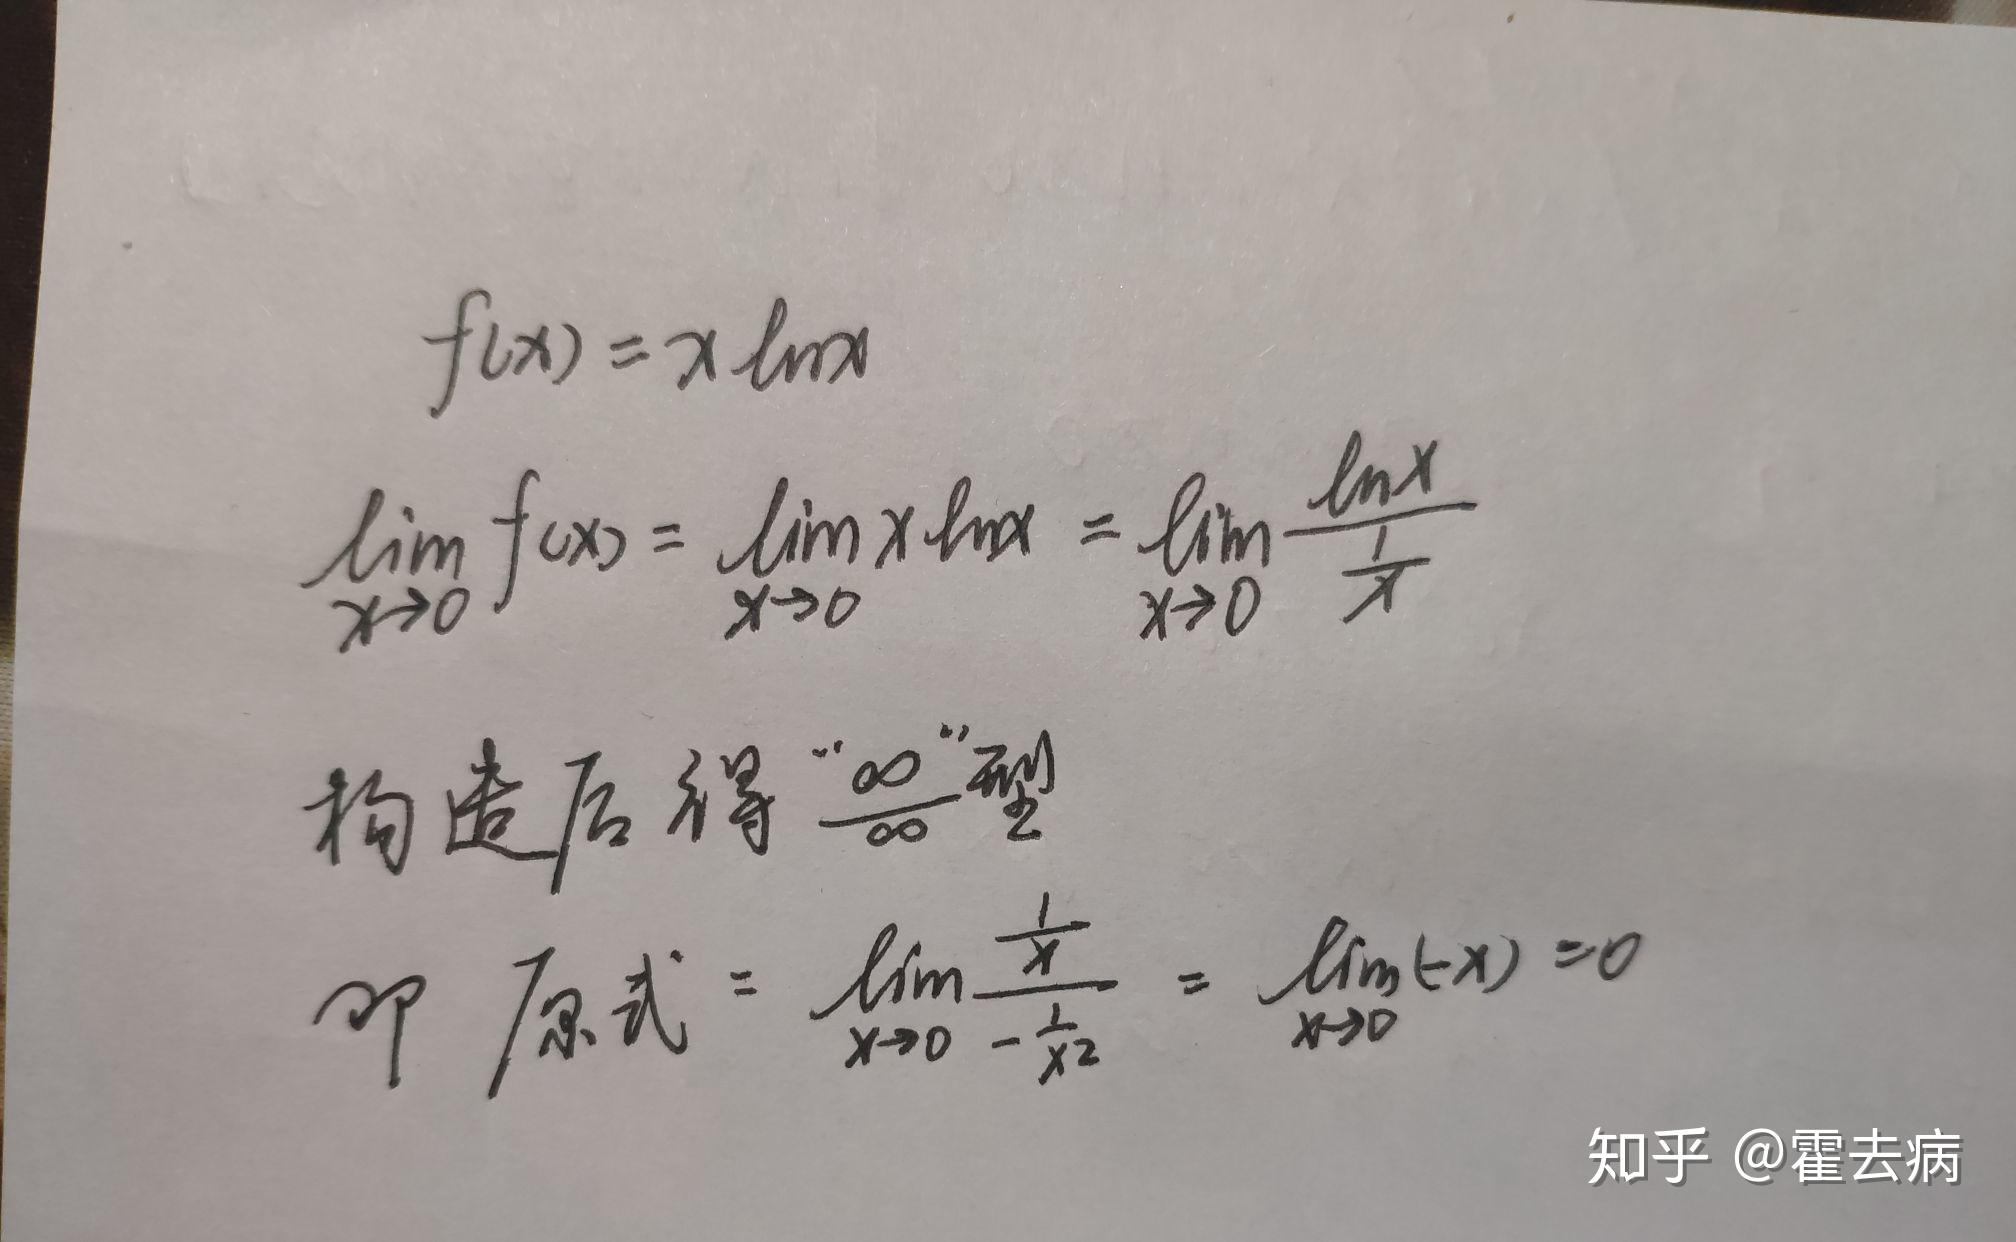 f(x) = x lnx
lim x→0 f(x) = lim x→0 x lnx = lim x→0 lnx / (1/x)
构造后得 "∞/∞" 型
即 原式 = lim x→0 (1/x) / (-1/x²) = lim x→0 (-x) = 0
知乎 @霍去病